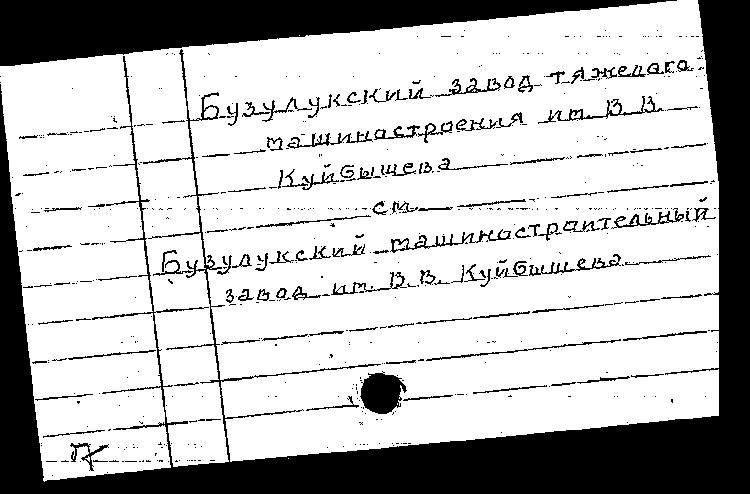 Бузулукский завод тяжелого
машиностроения им. В.В.
Куйбышева
см.
Бузулукский машиностроительный
завод им. В.В. Куйбышева